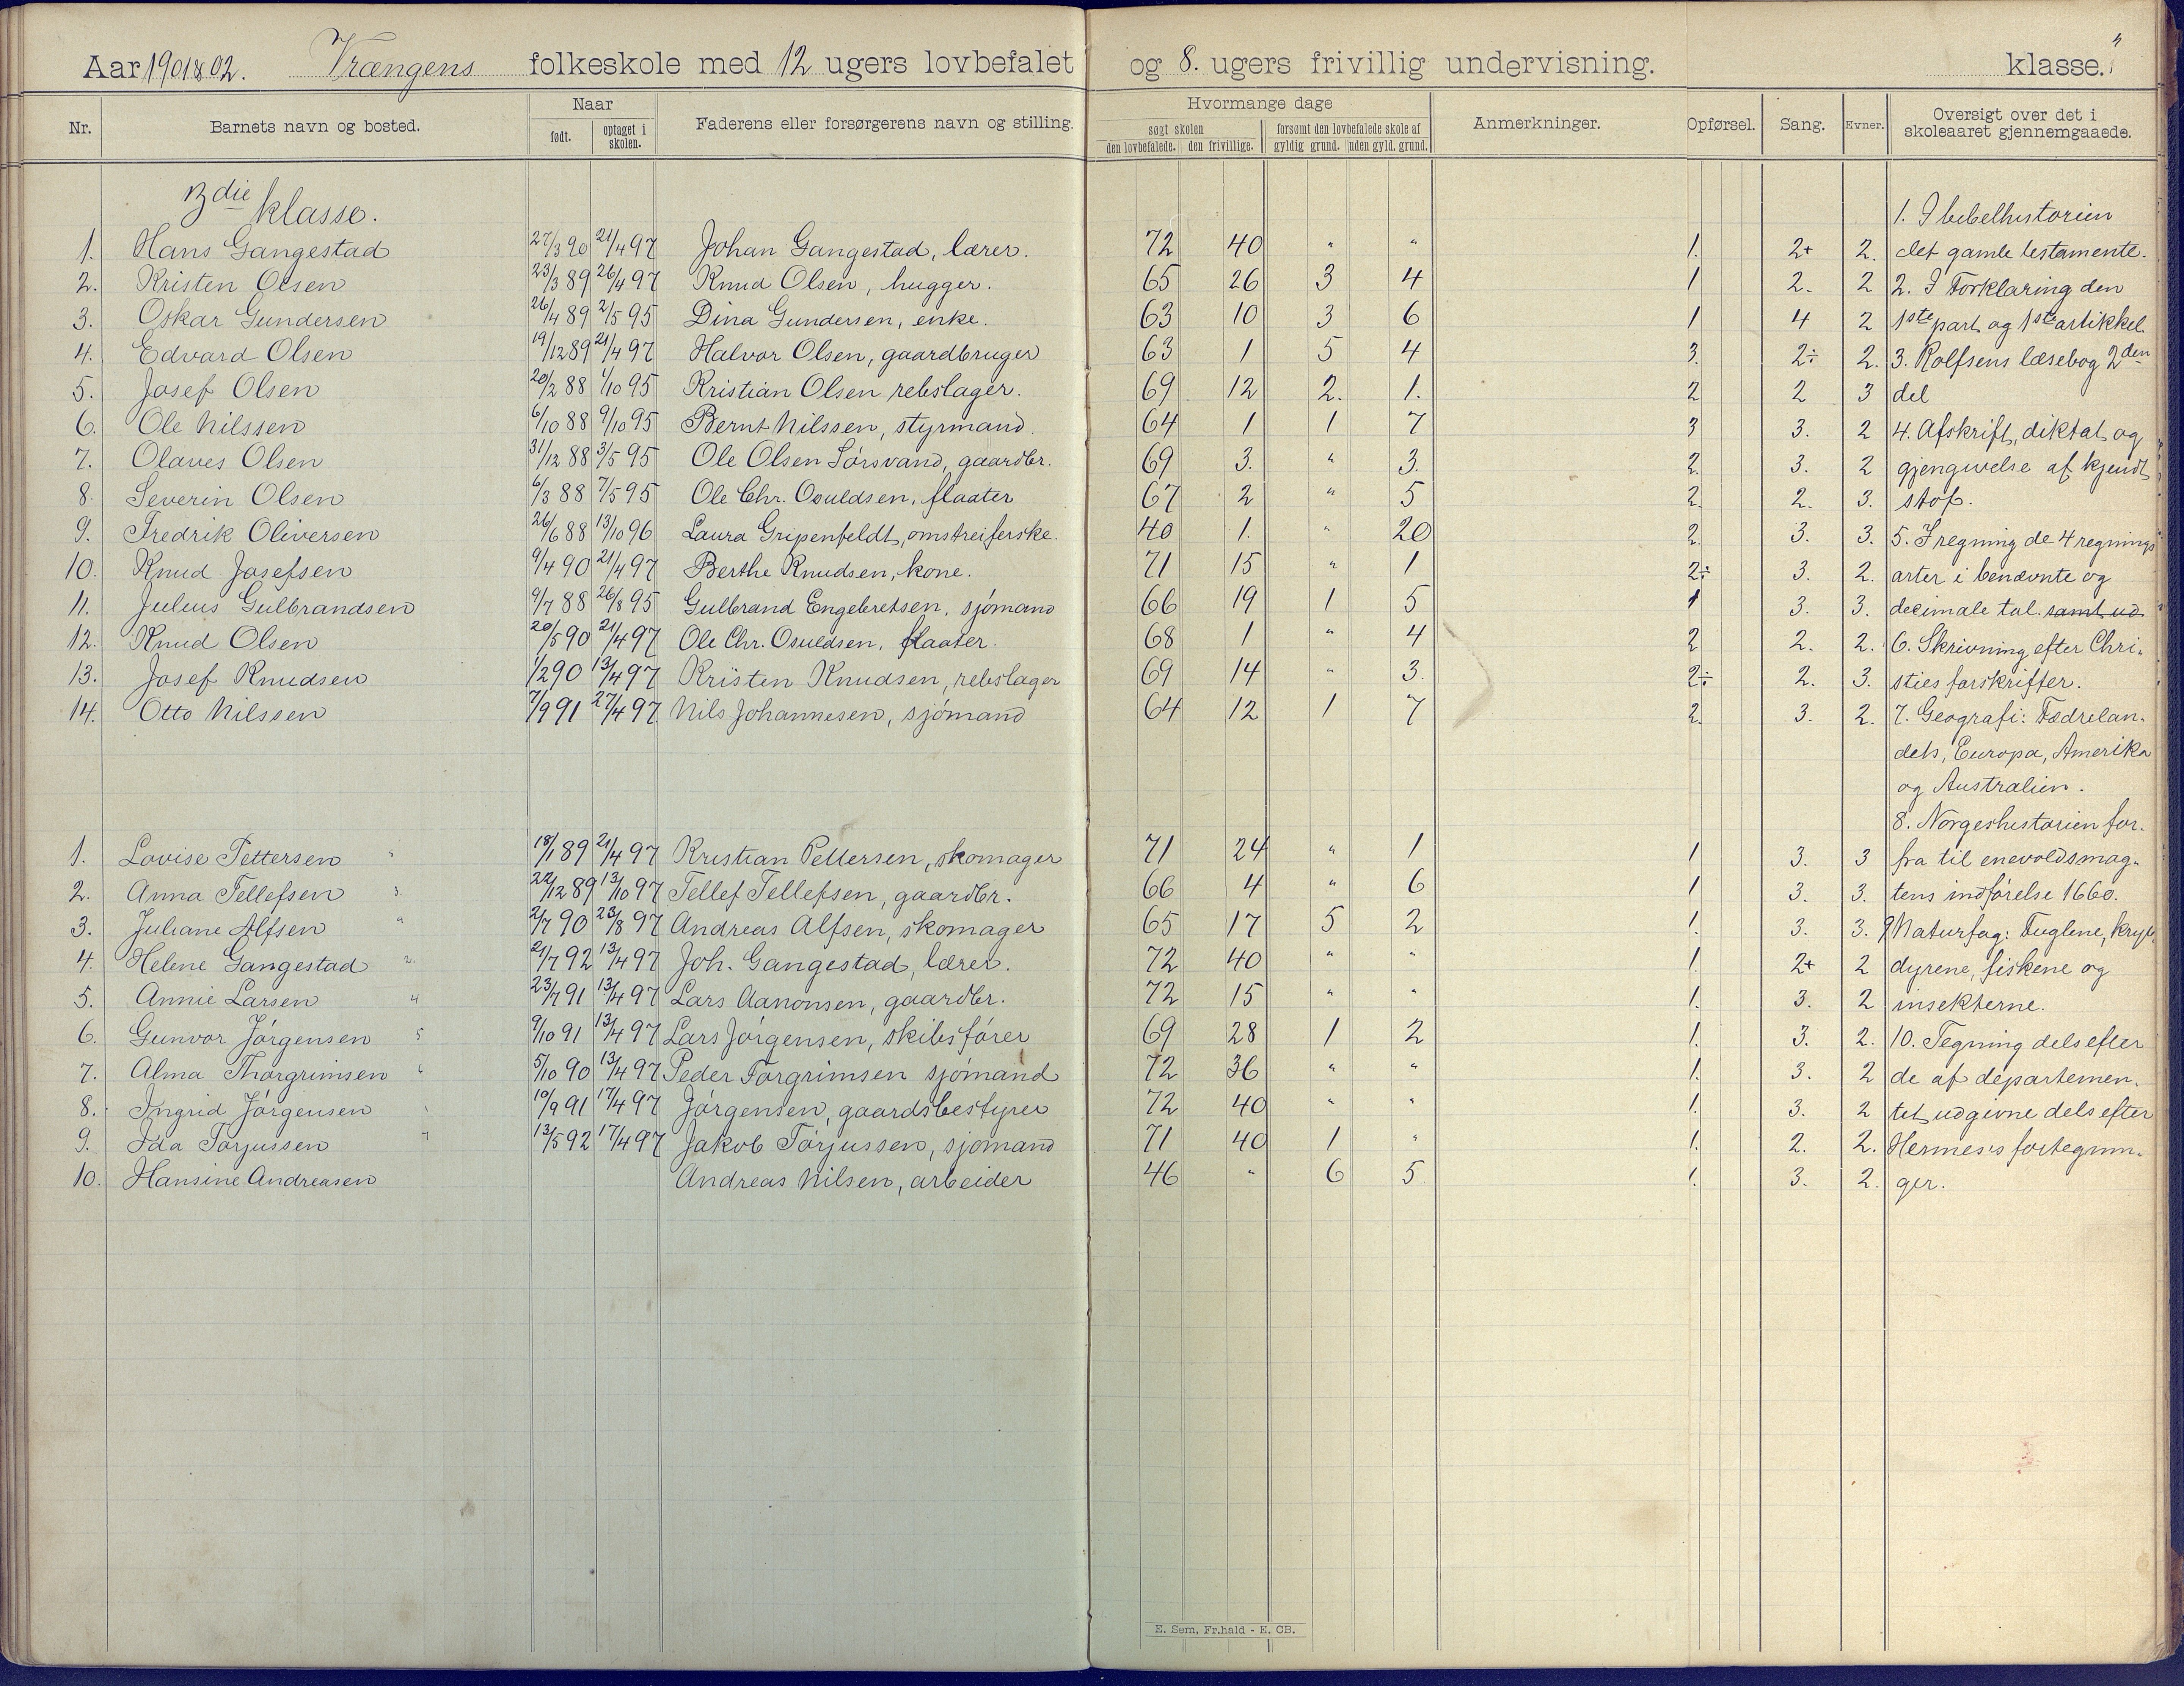 Aar 1901 & 02. Vrængens folkeskole med 12 ugers lovbefalet og 8. ugers frivillig undervisning. klasse.
Nr. Barnets navn og bosted. Naar født. optaget i skolen. Faderens eller forsørgerens navn og stilling. Hvormange dage søgt skolen den lovbefalede. den frivillige. forsømt den lovbefalede skole af gyldig grund. uden gyld. grund. Anmerkninger. Opførsel. Sang. Evner. Oversigt over det i skoleaaret gjennemgaaede.
3die klasse. 1. I bibelhistorien
1. Hans Gangestad 27/3 90 21/4 97 Johan Gangestad, lærer. 72 40 " " 1. 2+ 2. det gamle testamente.
2. Kristen Olsen 23/3 89 26/4 97 Knud Olsen, hugger. 65 26 3 4 1 2. 2 2. I Forklaring den
3. Oskar Gundersen 26/4 89 2/5 95 Dina Gundersen, enke. 63 10 3 6 1 4 2 1ste part og 1ste artikkel
4. Edvard Olsen 19/12 89 21/4 97 Halvor Olsen, gaardbruger 63 1 5 4 3. 2÷ 2. 3. Rolfsens læsebog 2den
5. Josef Olsen 20/2 88 1/10 95 Kristian Olsen rebslager. 69 12 2. 1. 2 2 3 del
6. Ole Nilssen 6/10 88 9/10 95 Bernt Nilssen, styrmand. 64 1 1 7 3 3. 2 4. Afskrift, diktat og
7. Olaves Olsen 31/12 88 3/5 95 Ole Olsen Sørsvand, gaardbr. 69 3. " 3. 2. 3. 2 gjengivelse af kjendt
8. Severin Olsen 6/3 88 7/5 95 Ole Chr. Osuldsen, flaater 67 2 " 5 2. 2. 3. stof.
9. Fredrik Oliversen 26/6 88 13/10 96 Laura Gripenfeldt, omstreiferske. 40 1. " 20 2. 3. 3. 5. I regning de 4 regnings
10. Knud Josefsen 9/4 90 21/4 97 Berthe Knudsen, kone. 71 15 " 1 2÷ 3. 2. arter i benævnte og
11. Julius Gulbrandsen 9/7 88 26/8 95 Gulbrand Engebretsen, sjømand 66 19 1 5 1 3. 3. decimale tal. samt ud.
12. Knud Olsen 20/5 90 21/4 97 Ole Chr. Osuldsen, flaater. 68 1 " 4 2 2. 2. 6. Skrivning efter Chri-
13. Josef Knudsen 1/2 90 13/4 97 Kristen Knudsen, rebslager 69 14 " 3. 2÷ 2. 3. sties forskrifter.
14. Otto Nilssen 7/9 91 27/4 97 Nils Johannesen, sjømand 64 12 1 7 2. 3. 2. 7. Geografi: Fædrelan-
dets, Europa, Amerika
og Australien.
8. Norgeshistorien for-
1. Lovise Pettersen 18/1 89 21/4 97 Kristian Pettersen, skomager 71 24 " 1 1 3. 3 fra til enevoldsmag-
2. Anna Tellefsen 22/12 89 13/10 97 Tellef Tellefsen, gaardbr. 66 4 " 6 1 3. 3. tens indførelse 1660.
3. Juliane Alfsen 2/7 90 23/8 97 Andreas Alfsen, skomager 65 17 5 2 1. 3. 3. 9 Naturfag: Fuglene, kryb-
4. Helene Gangestad 2. 21/7 92 13/4 97 Joh. Gangestad, lærer. 72 40 " " 1. 2+ 2 dyrene, fiskene og
5. Annie Larsen 4 23/7 91 13/4 97 Lars Aanonsen, gaardbr. 72 15 " " 1. 3. 2 insekterne.
6. Gunvor Jørgensen 5 9/10 91 13/4 97 Lars Jørgensen, skibsfører 69 28 1 2 1. 3. 2. 10. Tegning dels efter
7. Alma Thorgrimsen 6 5/10 90 13/4 97 Peder Torgrimsen sjømand 72 36 " " 1. 3. 2 de af departemen-
8. Ingrid Jørgensen 10/9 91 17/4 97 Jørgensen, gaardsbestyrer 72 40 " " 1. 3. 2 tet udgivne dels efter
9. Ida Torjussen 7 13/5 92 17/4 97 Jakob Torjussen, sjømand 71 40 1 " 1. 2. 2. Hermes's fortegnin-
10. Hansine Andreasen Andreas Nilsen, arbeider 46 " 6 5 1. 3. 2. ger.
E. Sem, Fr.hald - E. CB.